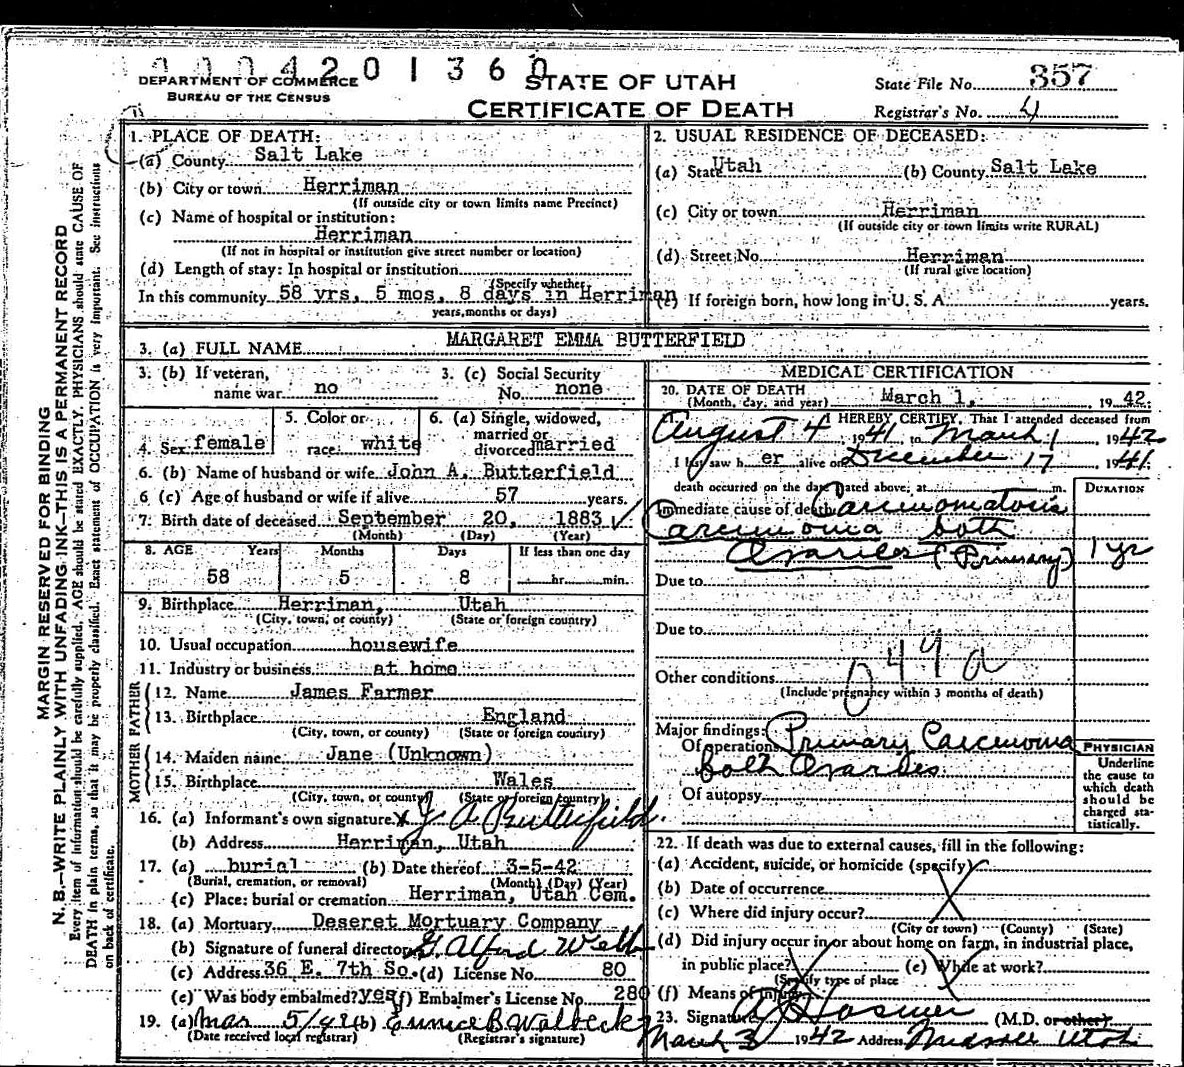 0004201360
DEPARTMENT OF COMMERCE
BUREAU OF THE CENSUS
STATE OF UTAH
CERTIFICATE OF DEATH
State File No. 357
Registrar's No. 4
MARGIN RESERVED FOR BINDING
N. B.—WRITE PLAINLY WITH UNFADING INK—THIS IS A PERMANENT RECORD
Every item of information should be carefully supplied. AGE should be stated EXACTLY. PHYSICIANS should state CAUSE OF
DEATH in plain terms, so that it may be properly classified. Exact statement of OCCUPATION is very important. See instructions
on back of certificate.
1. PLACE OF DEATH:
(a) County Salt Lake
(b) City or town Herriman
(If outside city or town limits name Precinct)
(c) Name of hospital or institution:
Herriman
(If not in hospital or institution give street number or location)
(d) Length of stay: In hospital or institution
(Specify whether
In this community 58 yrs, 5 mos, 8 days in Herriman
years, months or days)
2. USUAL RESIDENCE OF DECEASED:
(a) State Utah (b) County Salt Lake
(c) City or town Herriman
(If outside city or town limits write RURAL)
(d) Street No. Herriman
(If rural give location)
(e) If foreign born, how long in U. S. A. years.
3. (a) FULL NAME MARGARET EMMA BUTTERFIELD
3. (b) If veteran, name war no
3. (c) Social Security No. none
4. Sex female
5. Color or race white
6. (a) Single, widowed, married or divorced married
6. (b) Name of husband or wife John A. Butterfield
6 (c) Age of husband or wife if alive 57 years.
7. Birth date of deceased September 20, 1883
(Month) (Day) (Year)
8. AGE Years Months Days If less than one day
58 5 8 hr. min.
9. Birthplace Herriman, Utah
(City, town, or county) (State or foreign country)
10. Usual occupation housewife
11. Industry or business at home
FATHER
12. Name James Farmer
13. Birthplace England
(City, town, or county) (State or foreign country)
MOTHER
14. Maiden name Jane (Unknown)
15. Birthplace Wales
(City, town, or county) (State or foreign country)
16. (a) Informant's own signature x J A Butterfield.
(b) Address Herriman, Utah
17. (a) burial (b) Date thereof 3-5-42
(Burial, cremation, or removal) (Month) (Day) (Year)
(c) Place: burial or cremation Herriman, Utah Cem.
18. (a) Mortuary Deseret Mortuary Company
(b) Signature of funeral director Alford Webb
(c) Address 36 E. 7th So. (d) License No. 80
(e) Was body embalmed? yes (f) Embalmer's License No. 280
19. (a) Mar 5/42 (b) Eunice B Walbeck
(Date received local registrar) (Registrar's signature)
MEDICAL CERTIFICATION
20. DATE OF DEATH March 1, 1942.
(Month, day, and year)
I HEREBY CERTIFY, That I attended deceased from
August 4 1941 to March 1 1942
I last saw her alive on December 17 1941.
death occurred on the date stated above, at m.
Immediate cause of death Carcinomatosis
Carcinoma both
Ovaries (Primary)
DURATION
1 yr
Due to
Due to
049a
Other conditions
(Include pregnancy within 3 months of death)
Major findings:
Of operations Primary Carcinoma
both Ovaries.
Of autopsy
PHYSICIAN
Underline
the cause to
which death
should be
charged sta-
tistically.
22. If death was due to external causes, fill in the following:
(a) Accident, suicide, or homicide (specify)
(b) Date of occurrence
(c) Where did injury occur?
(City or town) (County) (State)
(d) Did injury occur in or about home on farm, in industrial place,
in public place? (e) While at work?
(Specify type of place
(f) Means of injury
23. Signature (M.D. or other)
March 3 1942 Address Midvale Utah